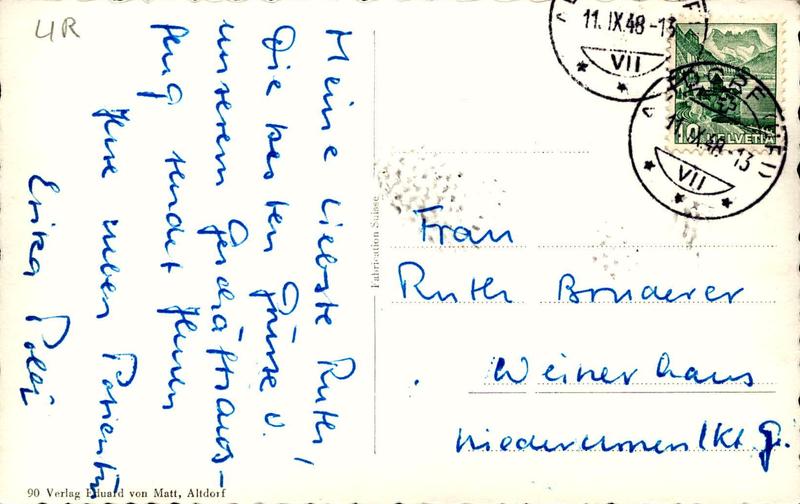 UR
Meine liebste Ruth,
Die besten Grüsse v.
unserem Geschäftsaus-
flug sendet Ihnen
Ihre
Erika
11.IX.48-13
VII
ALTDORF (URI)
11.IX.48-13
VII
10 HELVETIA
Frau
Ruth Bruderer
Weinerhaus
Niederurnen/Kt. G.
Fabrication Suisse
90 Verlag Eduard von Matt, Altdorf